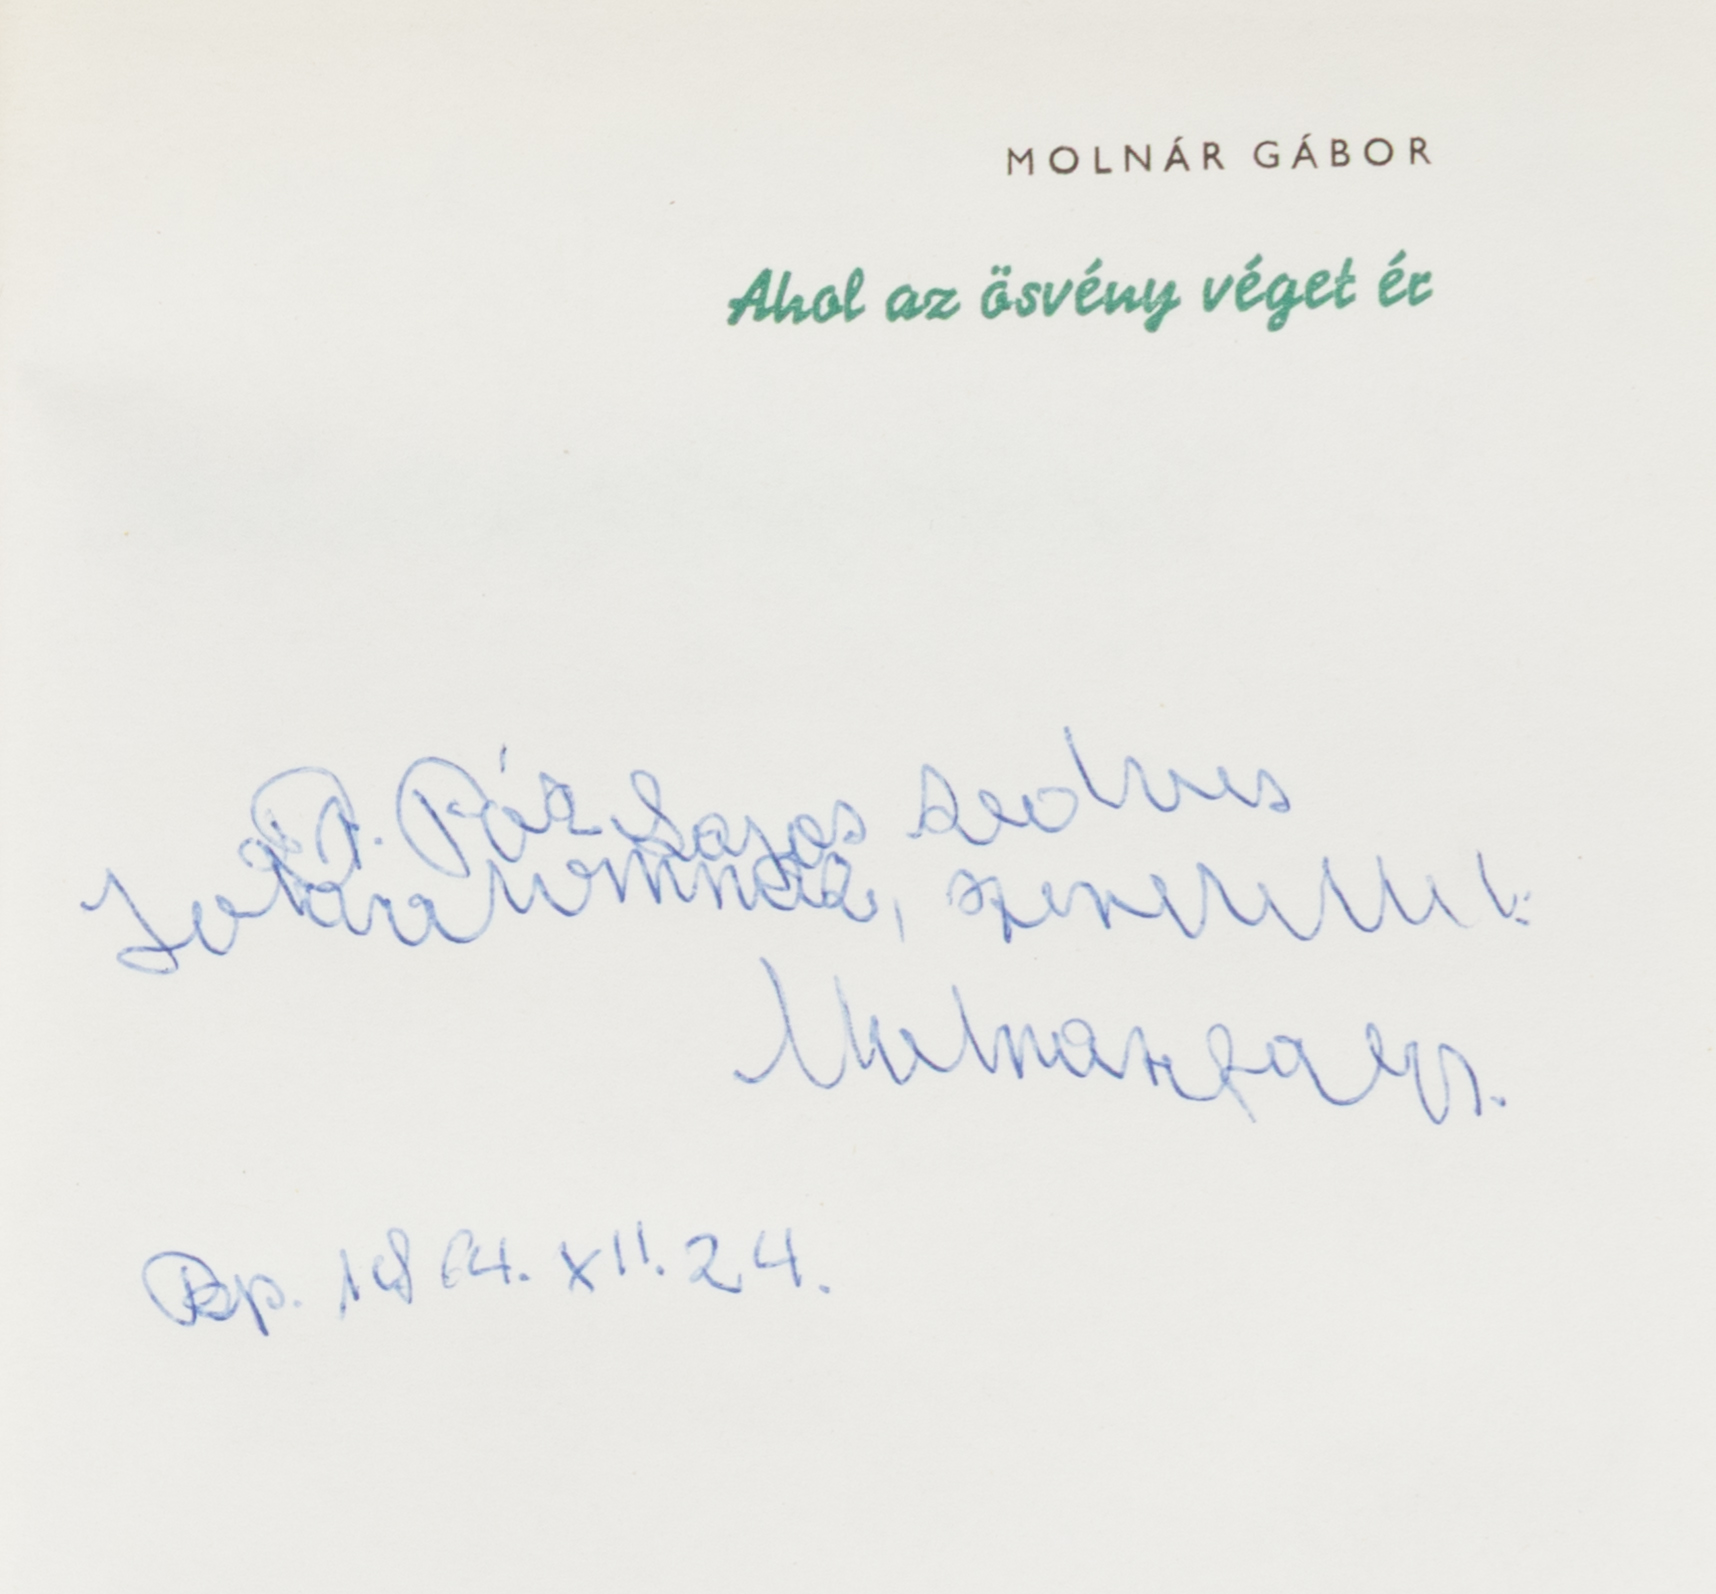 MOLNÁR GÁBOR
Ahol az ösvény véget ér
P. Páz Lajos kedves
barátomnak, szeretettel:
Molnár Gábor.
Bp. 1964. XII. 24.